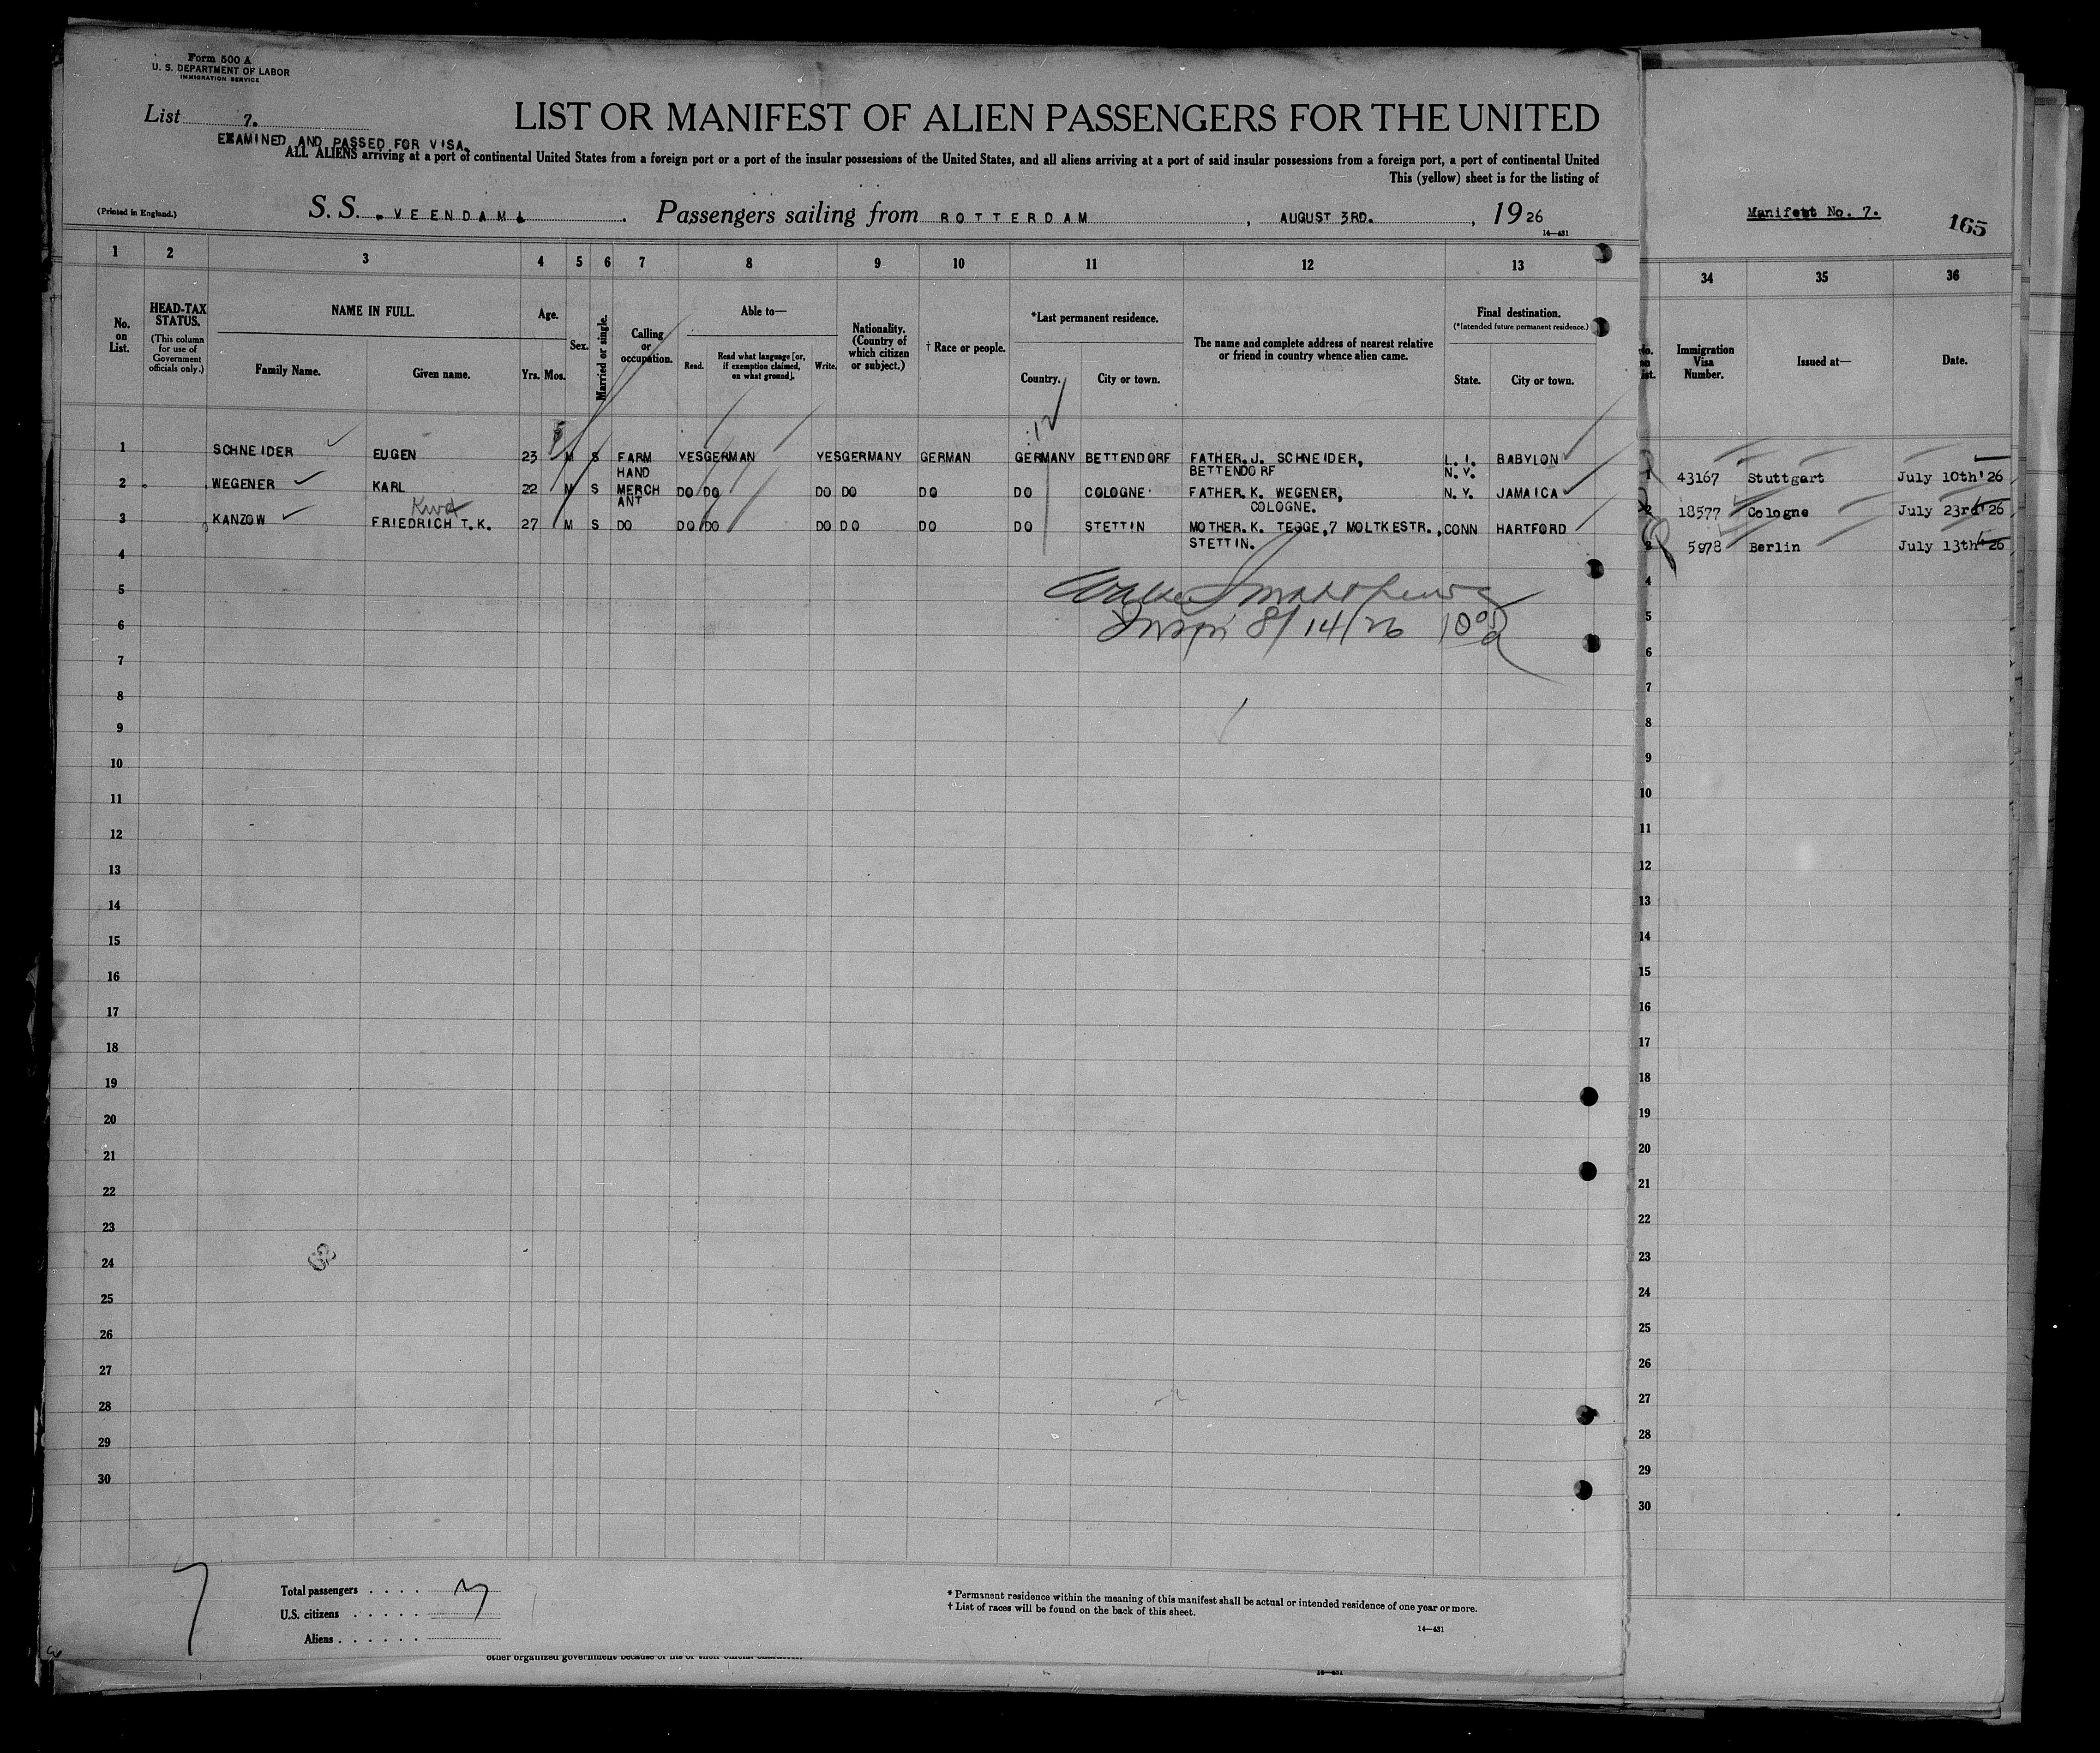 Form 500 A
U. S. DEPARTMENT OF LABOR
IMMIGRATION SERVICE
List 7.
LIST OR MANIFEST OF ALIEN PASSENGERS FOR THE UNITED
EXAMINED AND PASSED FOR VISA.
ALL ALIENS arriving at a port of continental United States from a foreign port or a port of the insular possessions of the United States, and all aliens arriving at a port of said insular possessions from a foreign port, a port of continental United
This (yellow) sheet is for the listing of
(Printed in England.)
S. S. "VEENDAM" Passengers sailing from ROTTERDAM, AUGUST 3RD., 1926
14—431
1 2 3 4 5 6 7 8 9 10 11 12 13
No. on List.
HEAD-TAX STATUS.
(This column for use of Government officials only.)
NAME IN FULL.
Family Name. Given name.
Age.
Yrs. Mos.
Sex.
Married or single.
Calling or occupation.
Able to—
Read. Read what language [or, if exemption claimed, on what ground]. Write.
Nationality. (Country of which citizen or subject.)
† Race or people.
*Last permanent residence.
Country. City or town.
The name and complete address of nearest relative or friend in country whence alien came.
Final destination.
(*Intended future permanent residence.)
State. City or town.
1 SCHNEIDER EUGEN 23 M S FARM HAND YES GERMAN YES GERMANY GERMAN GERMANY BETTENDORF FATHER.J. SCHNEIDER, BETTENDORF L. I. N.Y. BABYLON
2 WEGENER KARL 22 M S MERCHANT DO DO DO DO DO DO COLOGNE FATHER.K. WEGENER, COLOGNE. N.Y. JAMAICA
Kurt
3 KANZOW FRIEDRICH T.K. 27 M S DO DO DO DO DO DO DO STETTIN MOTHER.K. TEGGE,7 MOLTKESTR., STETTIN. CONN HARTFORD
4
5
6
7
8
9
10
11
12
13
14
15
16
17
18
19
20
21
22
23
24
25
26
27
28
29
30
8/14/26
7
Total passengers
U.S. citizens
Aliens
* Permanent residence within the meaning of this manifest shall be actual or intended residence of one year or more.
† List of races will be found on the back of this sheet.
14—431
other organized government because of his or their official character.
14—431
Manifest No. 7.
165
34 35 36
No. on List.
Immigration Visa Number.
Issued at—
Date.
1 43167 Stuttgart July 10th'26
2 18577 Cologne July 23rd'26
3 5978 Berlin July 13th'26
4
5
6
7
8
9
10
11
12
13
14
15
16
17
18
19
20
21
22
23
24
25
26
27
28
29
30